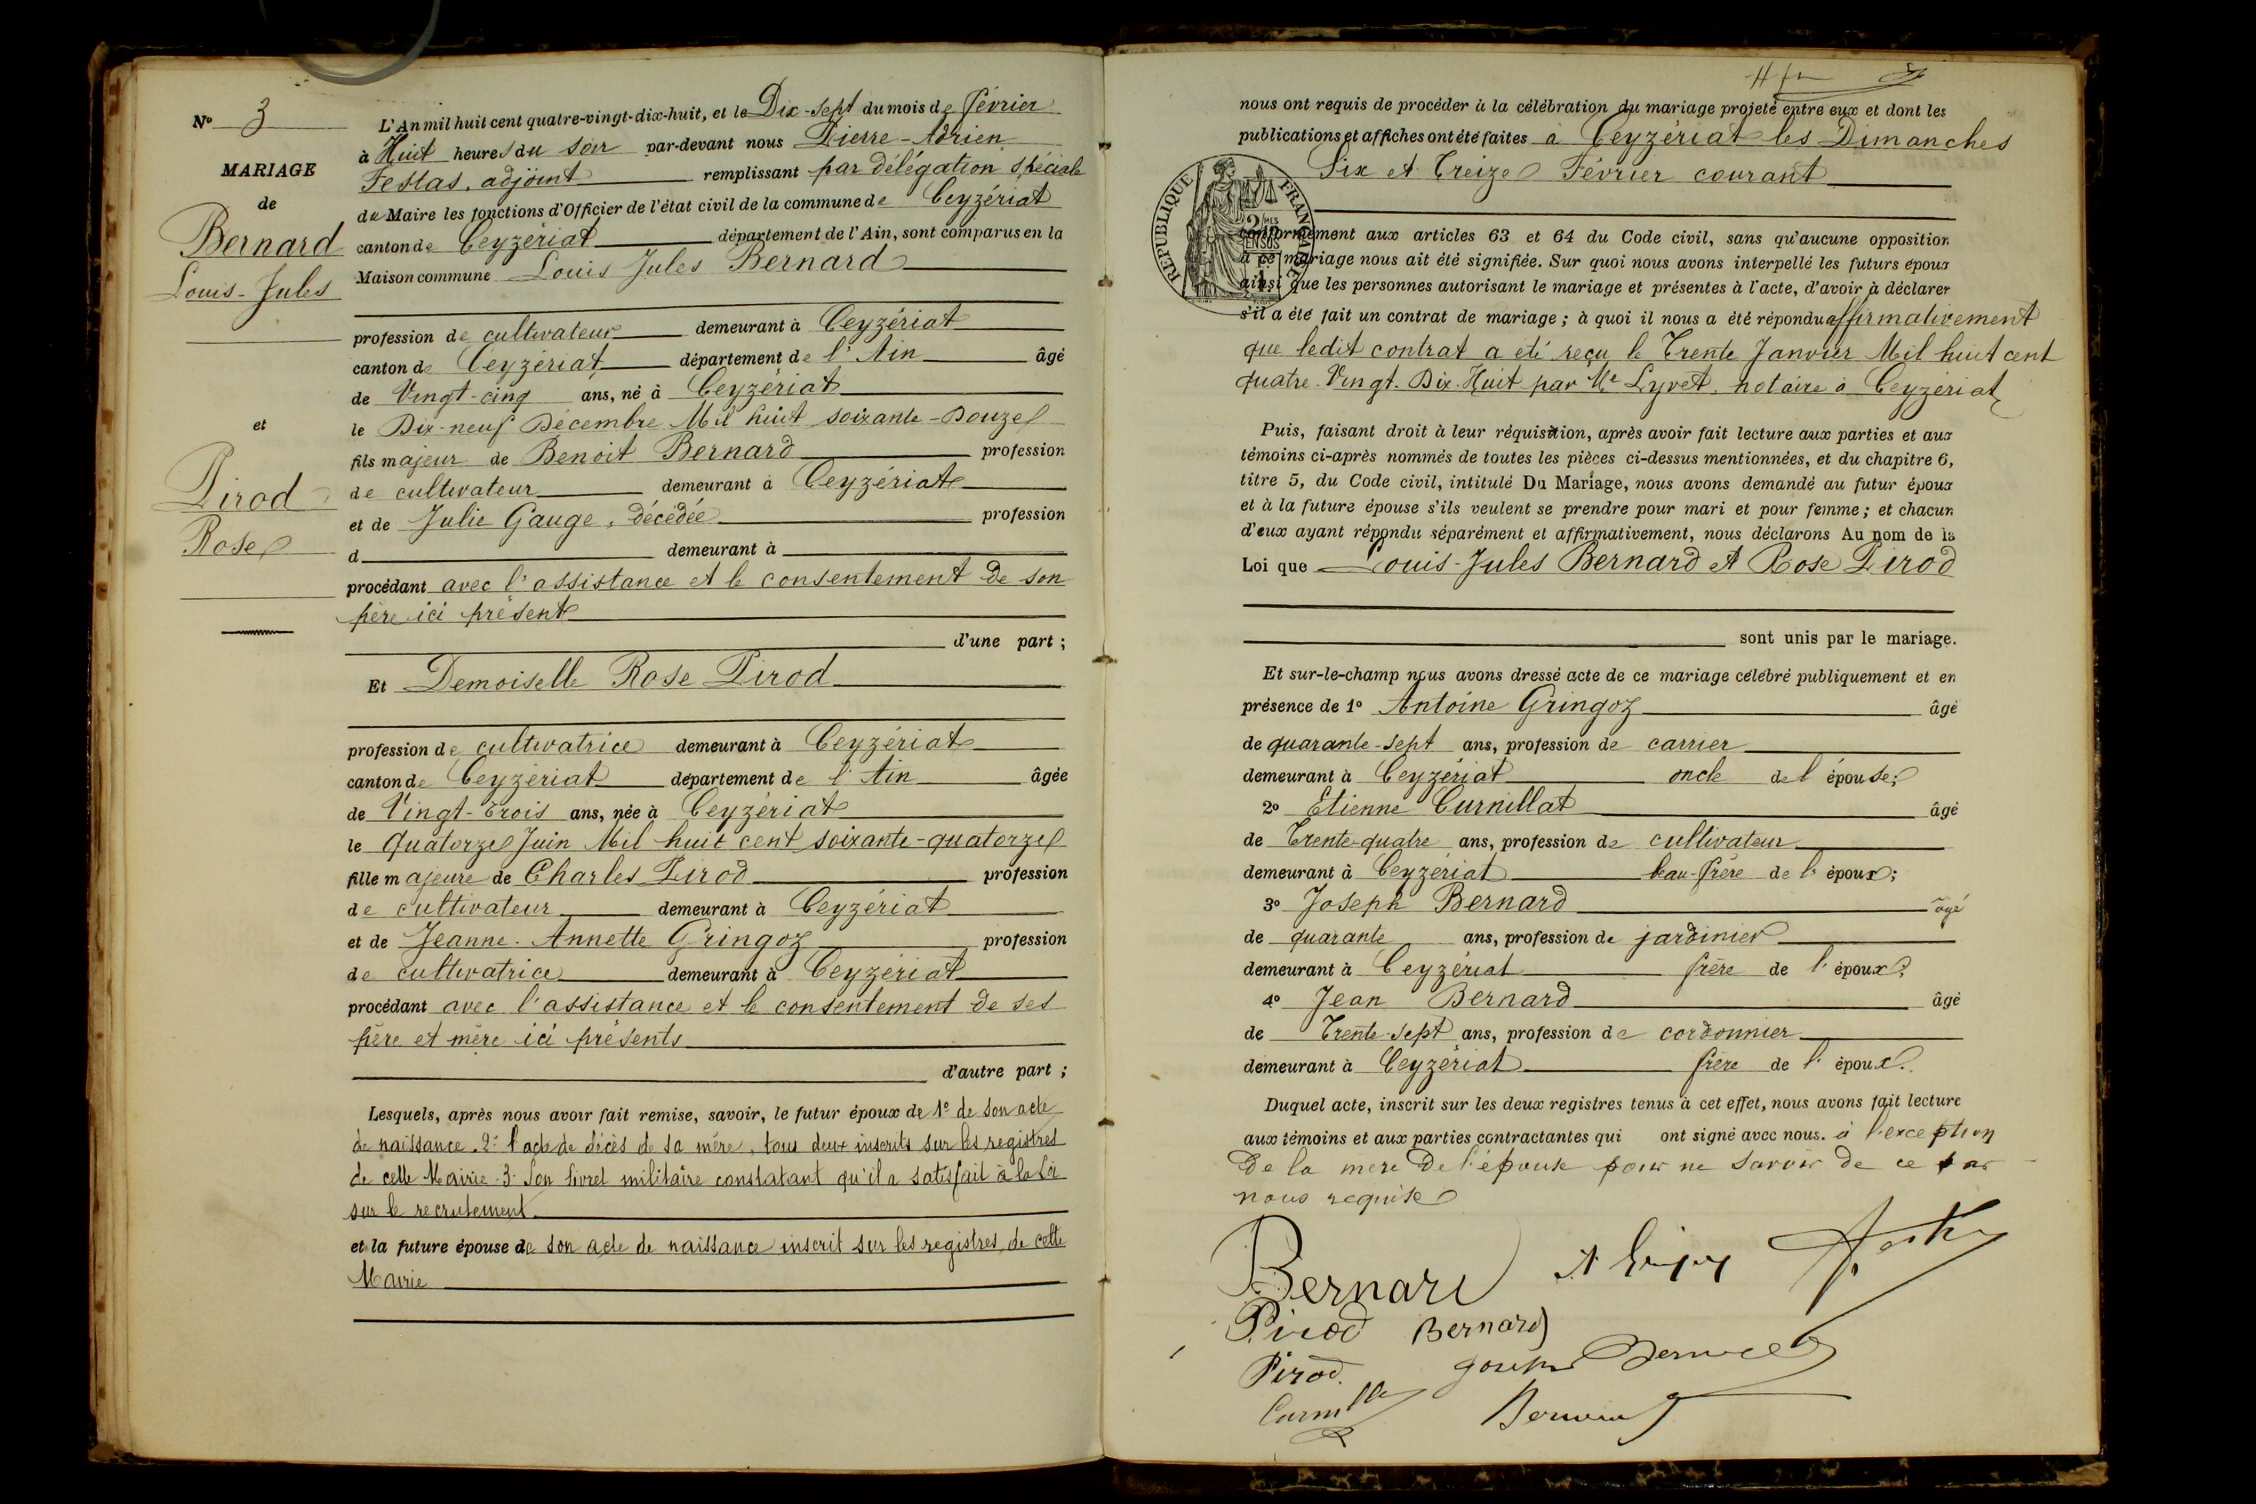 N° 3
MARIAGE
de
Bernard
Louis-Jules
et
Pirod
Rose
L'An mil huit cent quatre-vingt-dix-huit, et le Dix-sept du mois de Février
à Huit heures du soir par-devant nous Pierre-Adrien
Festas, adjoint remplissant par délégation spéciale
du Maire les fonctions d'Officier de l'état civil de la commune de Ceyzériat
canton de Ceyzériat département de l'Ain, sont comparus en la
Maison commune Louis Jules Bernard
profession de cultivateur demeurant à Ceyzériat
canton de Ceyzériat département de l'Ain âgé
de Vingt-cinq ans, né à Ceyzériat
le Dix-neuf Décembre Mil huit soixante-Douze
fils majeur de Benoit Bernard profession
de cultivateur demeurant à Ceyzériat
et de Julie Gauge, décédée profession
d demeurant à
procédant avec l'assistance et le consentement de son
père ici présent
d'une part ;
Et Demoiselle Rose Pirod
profession de cultivatrice demeurant à Ceyzériat
canton de Ceyzériat département de l'Ain âgée
de Vingt-trois ans, née à Ceyzériat
le Quatorze Juin Mil huit cent soixante-quatorze
fille majeure de Charles Pirod profession
de cultivateur demeurant à Ceyzériat
et de Jeanne-Annette Gringoz profession
de cultivatrice demeurant à Ceyzériat
procédant avec l'assistance et le consentement de ses
père et mère ici présents
d'autre part ;
Lesquels, après nous avoir fait remise, savoir, le futur époux de 1° de son acte
de naissance. 2° l'acte de décès de sa mère, tous deux inscrits sur les registres
de cette Mairie 3° Son livret militaire constatant qu'il a satisfait à la loi
sur le recrutement.
et la future épouse de son acte de naissance inscrit sur les registres de cette
Mairie
nous ont requis de procéder à la célébration du mariage projeté entre eux et dont les
publications et affiches ont été faites à Ceyzériat les Dimanches
Six et Treize Février courant
RÉPUBLIQUE FRANÇAISE
conformément aux articles 63 et 64 du Code civil, sans qu'aucune opposition
à ce mariage nous ait été signifiée. Sur quoi nous avons interpellé les futurs époux
ainsi que les personnes autorisant le mariage et présentes à l'acte, d'avoir à déclarer
s'il a été fait un contrat de mariage ; à quoi il nous a été répondu affirmativement
que ledit contrat a été reçu le Trente Janvier Mil huit cent
quatre-Vingt-Dix-Huit par Me Lyvet, notaire à Ceyzériat
Puis, faisant droit à leur réquisition, après avoir fait lecture aux parties et aux
témoins ci-après nommés de toutes les pièces ci-dessus mentionnées, et du chapitre 6,
titre 5, du Code civil, intitulé Du Mariage, nous avons demandé au futur époux
et à la future épouse s'ils veulent se prendre pour mari et pour femme ; et chacun
d'eux ayant répondu séparément et affirmativement, nous déclarons Au nom de la
Loi que Louis-Jules Bernard et Rose Pirod
sont unis par le mariage.
Et sur-le-champ nous avons dressé acte de ce mariage célébré publiquement et en
présence de 1° Antoine Gringoz âgé
de quarante-sept ans, profession de carrier
demeurant à Ceyzériat oncle de l'épouse;
2° Etienne Curnillat âgé
de Trente-quatre ans, profession de cultivateur
demeurant à Ceyzériat beau-frère de l'époux;
3° Joseph Bernard âgé
de quarante ans, profession de jardinier
demeurant à Ceyzériat frère de l'époux;
4° Jean Bernard âgé
de Trente-sept ans, profession de cordonnier
demeurant à Ceyzériat frère de l'époux.
Duquel acte, inscrit sur les deux registres tenus à cet effet, nous avons fait lecture
aux témoins et aux parties contractantes qui ont signé avec nous. à l'exception
de la mère de l'épouse pour ne savoir de ce par
nous requise
Bernard
Pirod Bernard
Pirod. Joseph Bernard